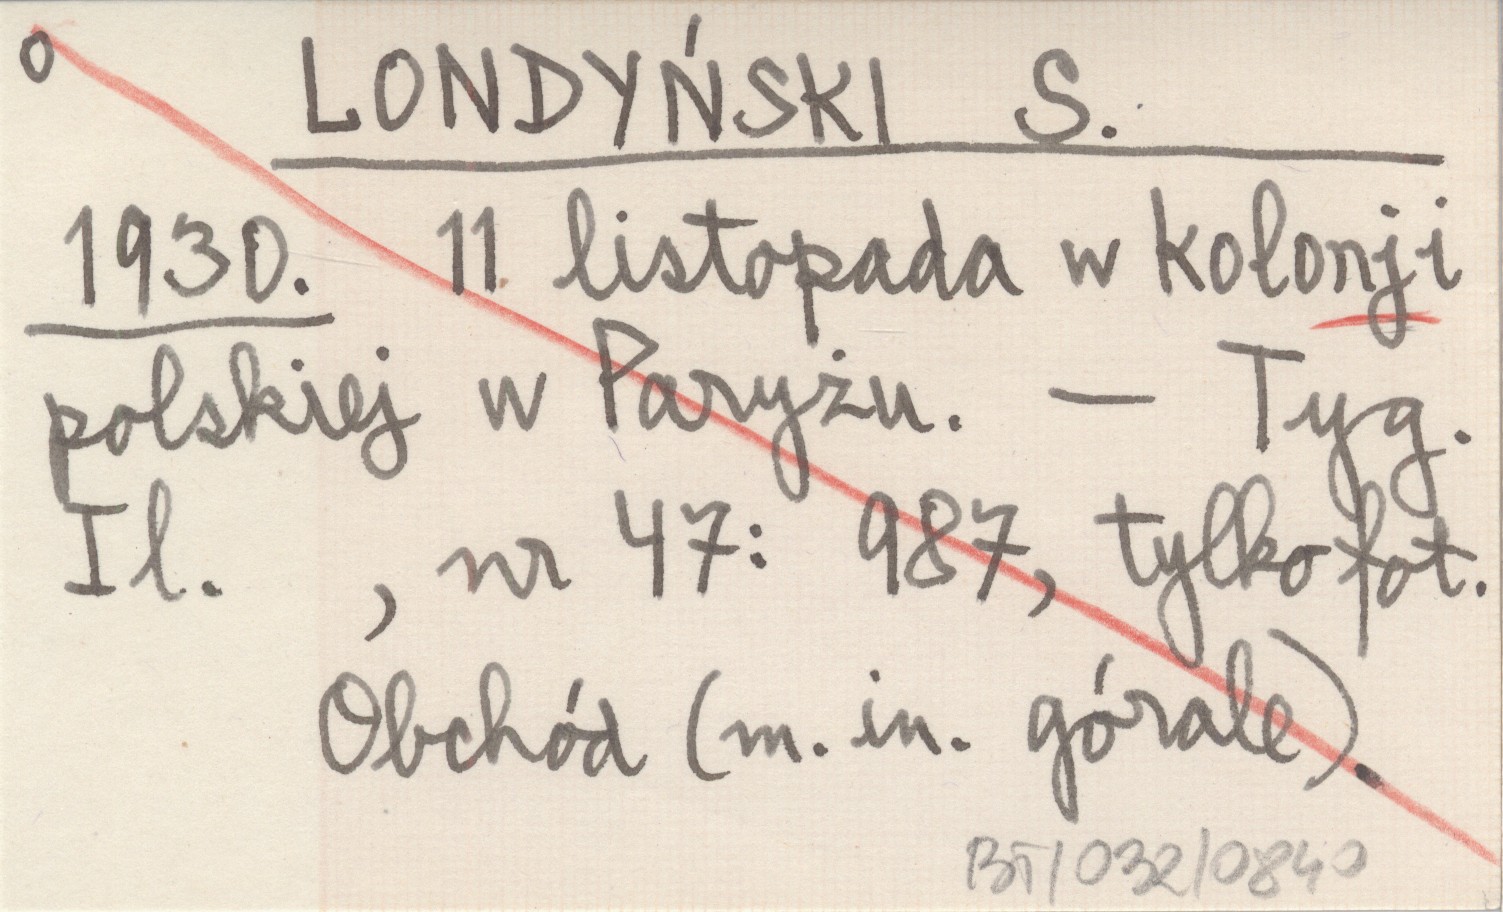 o LONDYŃSKI S.
1930. 11 listopada w kolonji
polskiej w Paryżu. — Tyg.
Il. , nr 47: 987, tylko fot.
Obchód (m. in. górale).
BT/032/0840